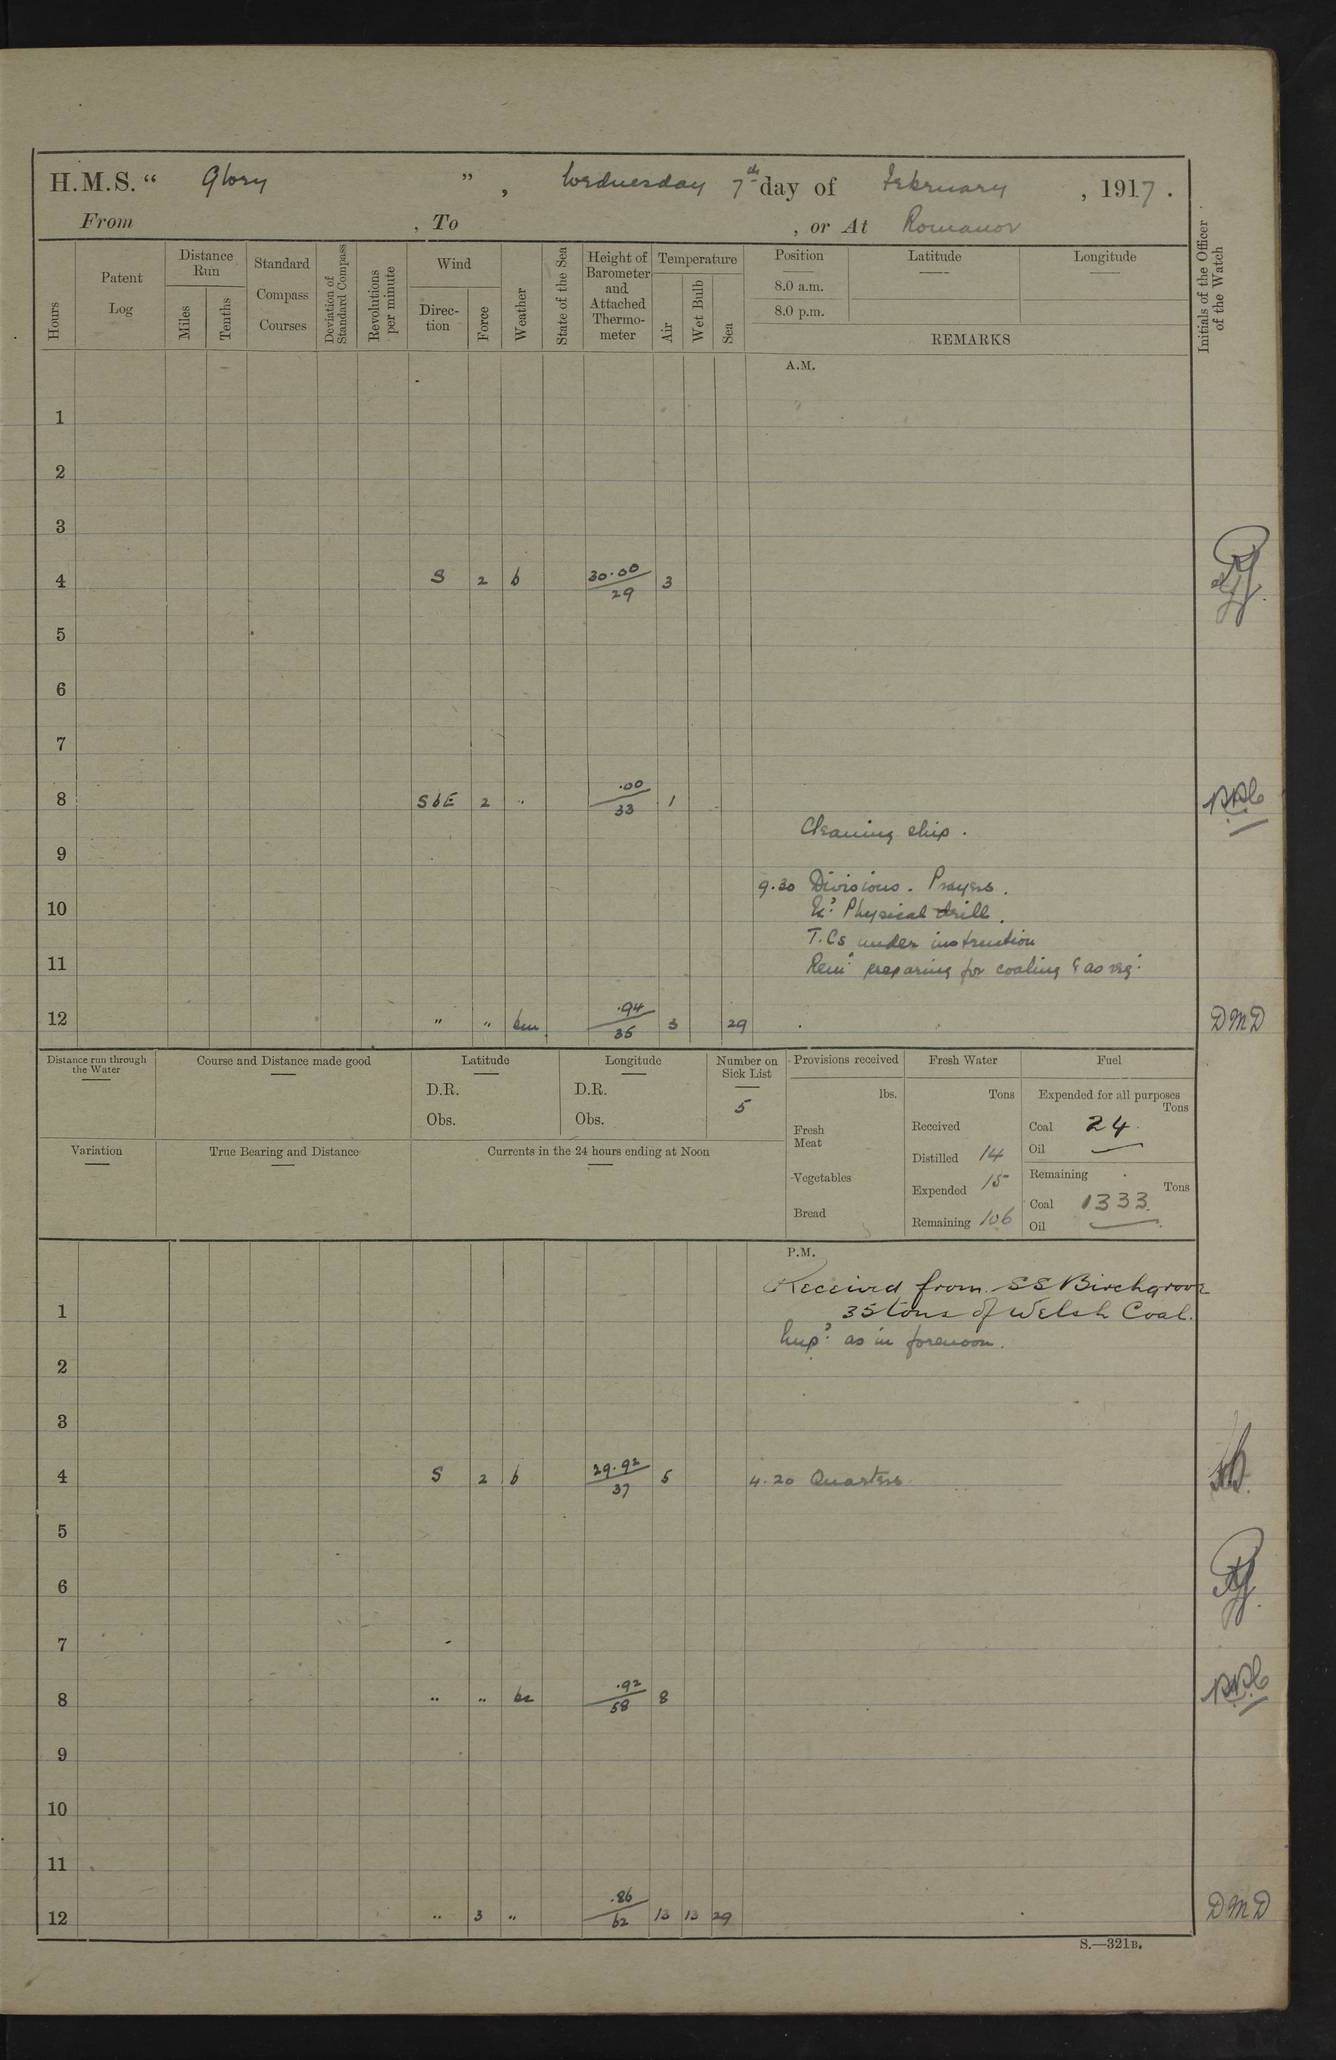 H.M.S. “ Glory ” , Wednesday 7th day of February , 1917 .
From , To , or At Romanov
Hours
Patent Log
Distance Run
Miles
Tenths
Standard Compass Courses
Deviation of Standard Compass
Revolutions per minute
Wind
Direction
Force
Weather
State of the Sea
Height of Barometer and Attached Thermometer
Temperature
Air
Wet Bulb
Sea
Position
8.0 a.m.
8.0 p.m.
Latitude
Longitude
REMARKS
Initials of the Officer of the Watch
A.M.
1
2
3
4 S 2 b 30.00/29 3
5
6
7
8 SbE 2 " .00/33 1
Cleaning ship.
9
9.30 Divisions. Prayers.
10 Physical drill.
T.Cs under instruction
11 preparing for coaling & as req.
12 " " .94/35 3 29 DMD
Distance run through the Water
Course and Distance made good
Latitude
D.R.
Obs.
Longitude
D.R.
Obs.
Number on Sick List
5
Provisions received
lbs.
Fresh Meat
Vegetables
Bread
Fresh Water
Tons
Received
Distilled 14
Expended 15
Remaining 106
Fuel
Expended for all purposes
Tons
Coal 24
Oil —
Remaining
Tons
Coal 1333
Oil —
Variation
True Bearing and Distance
Currents in the 24 hours ending at Noon
P.M.
Received from SS Birchgrove
1 35 tons of Welsh Coal.
as in forenoon.
2
3
4 S 2 b 29.92/37 5 4.20 Quarters.
5
6
7
8 " " .92/58 8
9
10
11
12 " 3 " .86/62 13 13 29 DMD
S.—321B.